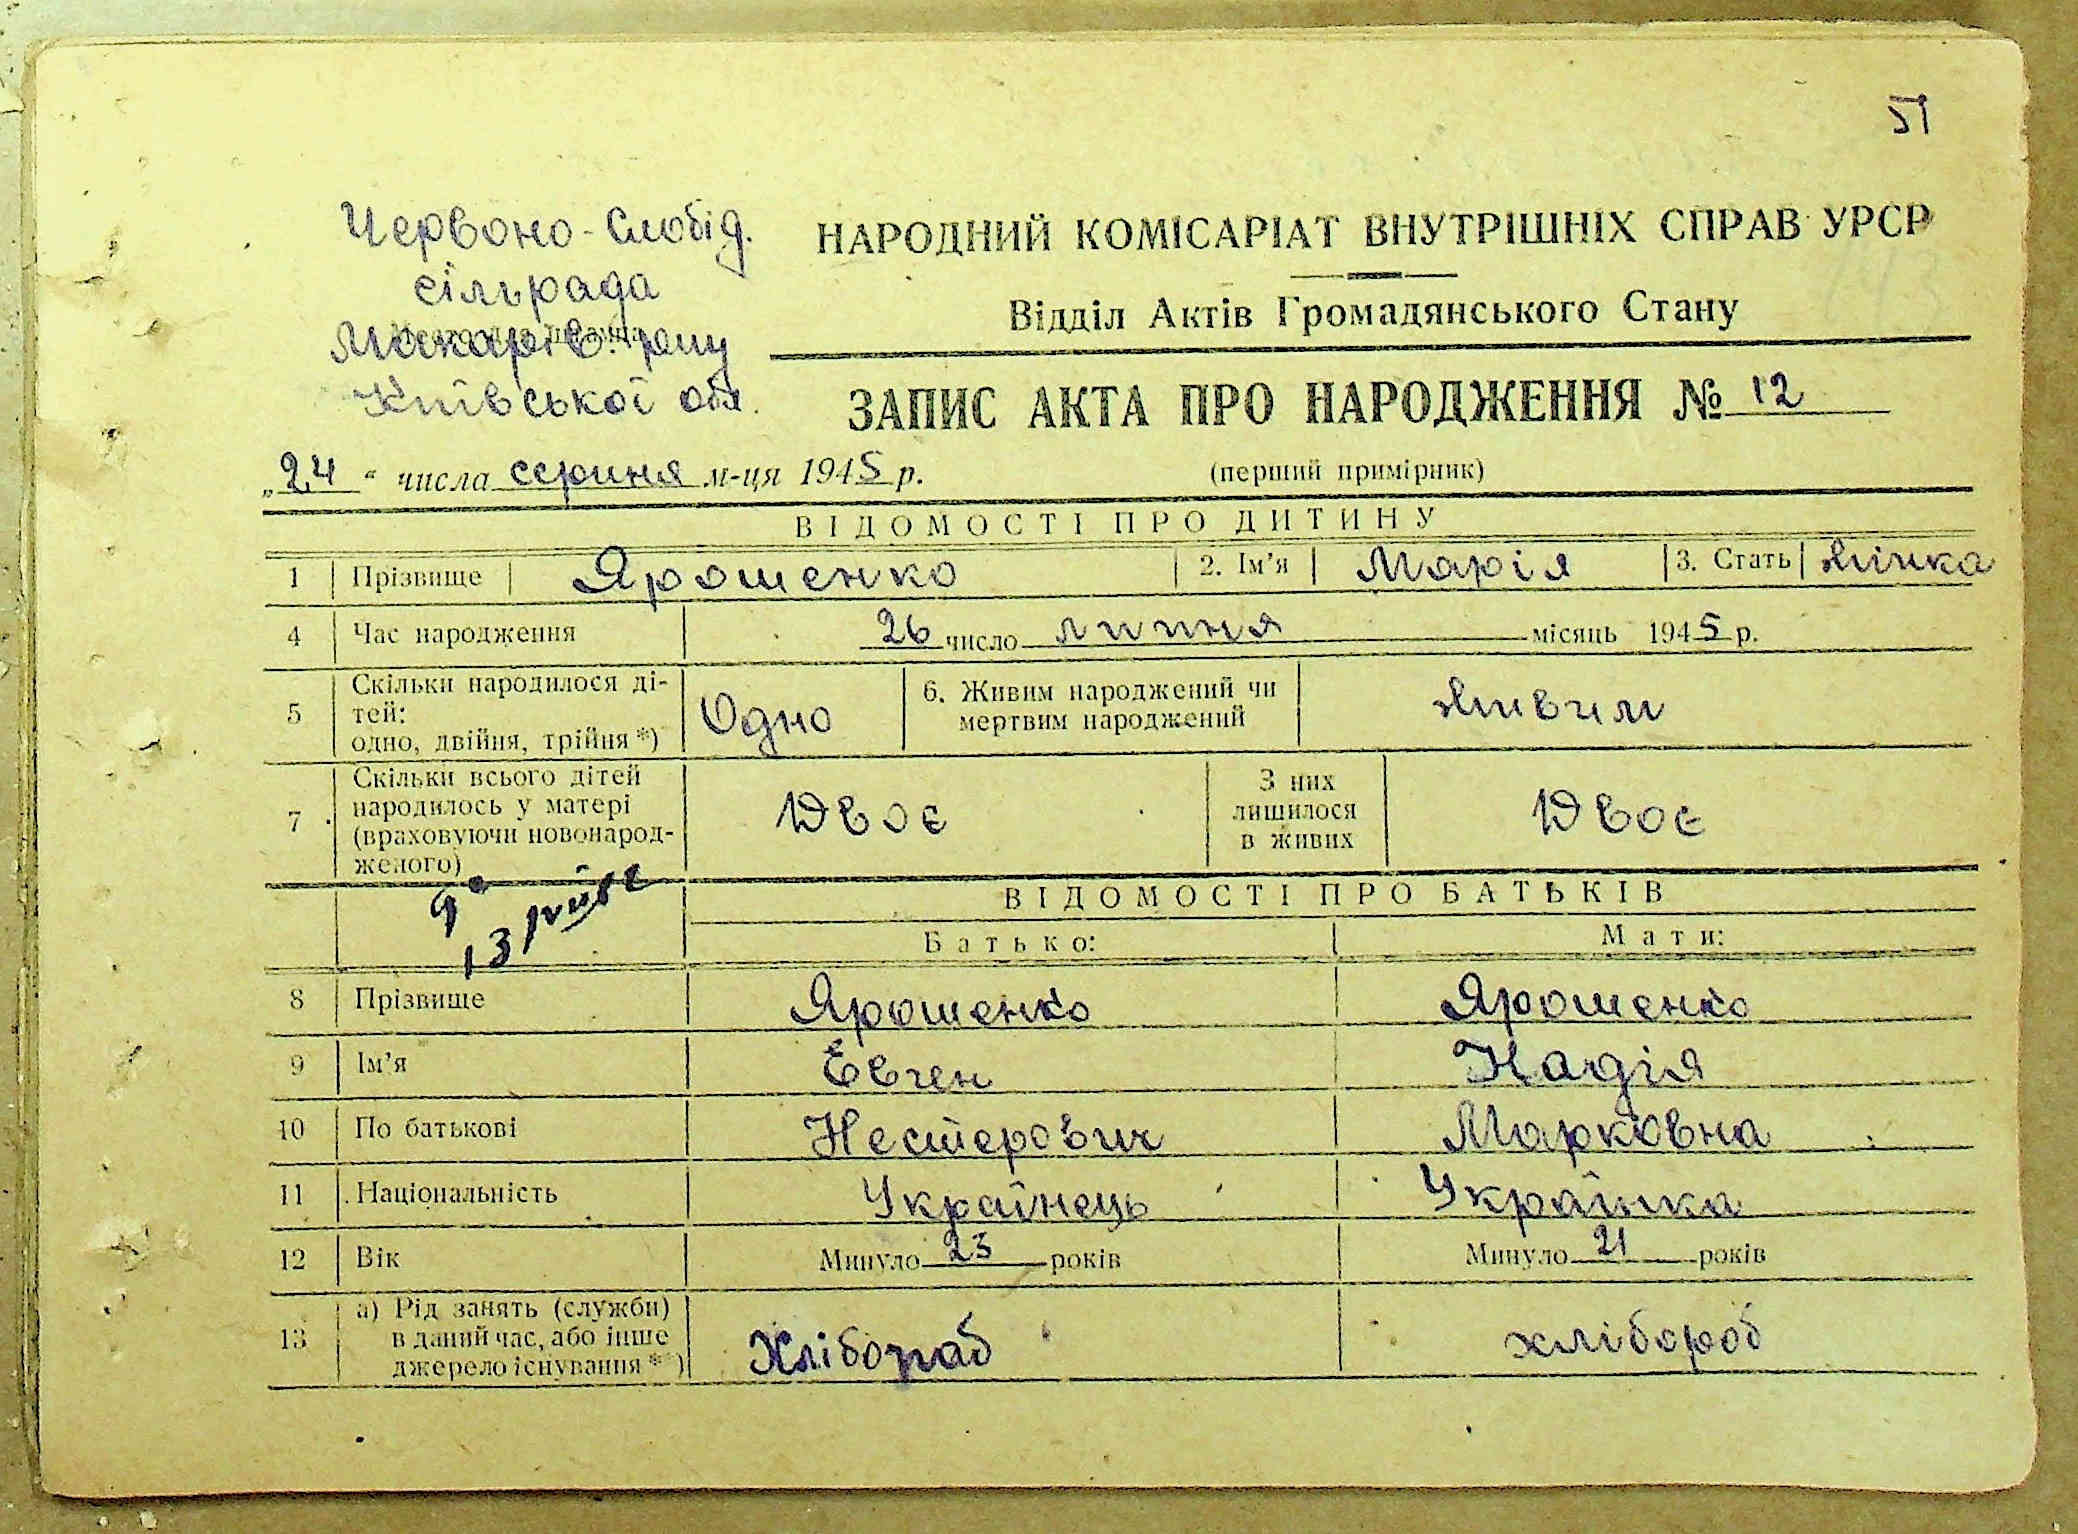 51
Червоно-Слобід.
сільрада
Макарів. р-ну
Київської обл.
НАРОДНИЙ КОМІСАРІАТ ВНУТРІШНІХ СПРАВ УРСР
Відділ Актів Громадянського Стану
ЗАПИС АКТА ПРО НАРОДЖЕННЯ № 12
„24“ числа серпня м-ця 1945 р. (перший примірник)
ВІДОМОСТІ ПРО ДИТИНУ
1 Прізвище Ярошенко 2. Ім'я Марія 3. Стать жінка
4 Час народження 26 число липня місяць 1945 р.
5 Скільки народилося ді-
тей:
одно, двійня, трійня *) Одно 6. Живим народжений чи
мертвим народжений живим
7 Скільки всього дітей
народилось у матері
(враховуючи новонарод-
женого) Двоє З них
лишилося
в живих Двоє
ВІДОМОСТІ ПРО БАТЬКІВ
Батько: Мати:
8 Прізвище Ярошенко Ярошенко
9 Ім'я Евген Надія
10 По батькові Нестерович Марковна
11 Національність Українець Українка
12 Вік Минуло 23 років Минуло 21 років
13 а) Рід занять (служби)
в даний час, або інше
джерело існування *) Хлібораб хлібороб